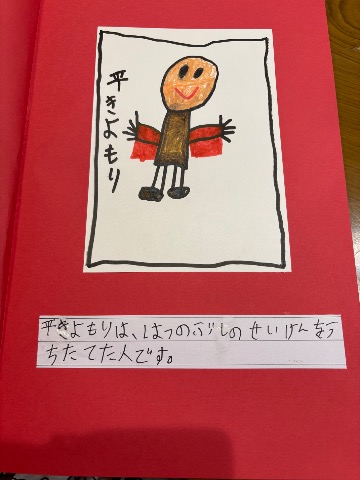 平きよもり
平きよもりは、はつのぶしのせいけんをう
ちたてた人です。